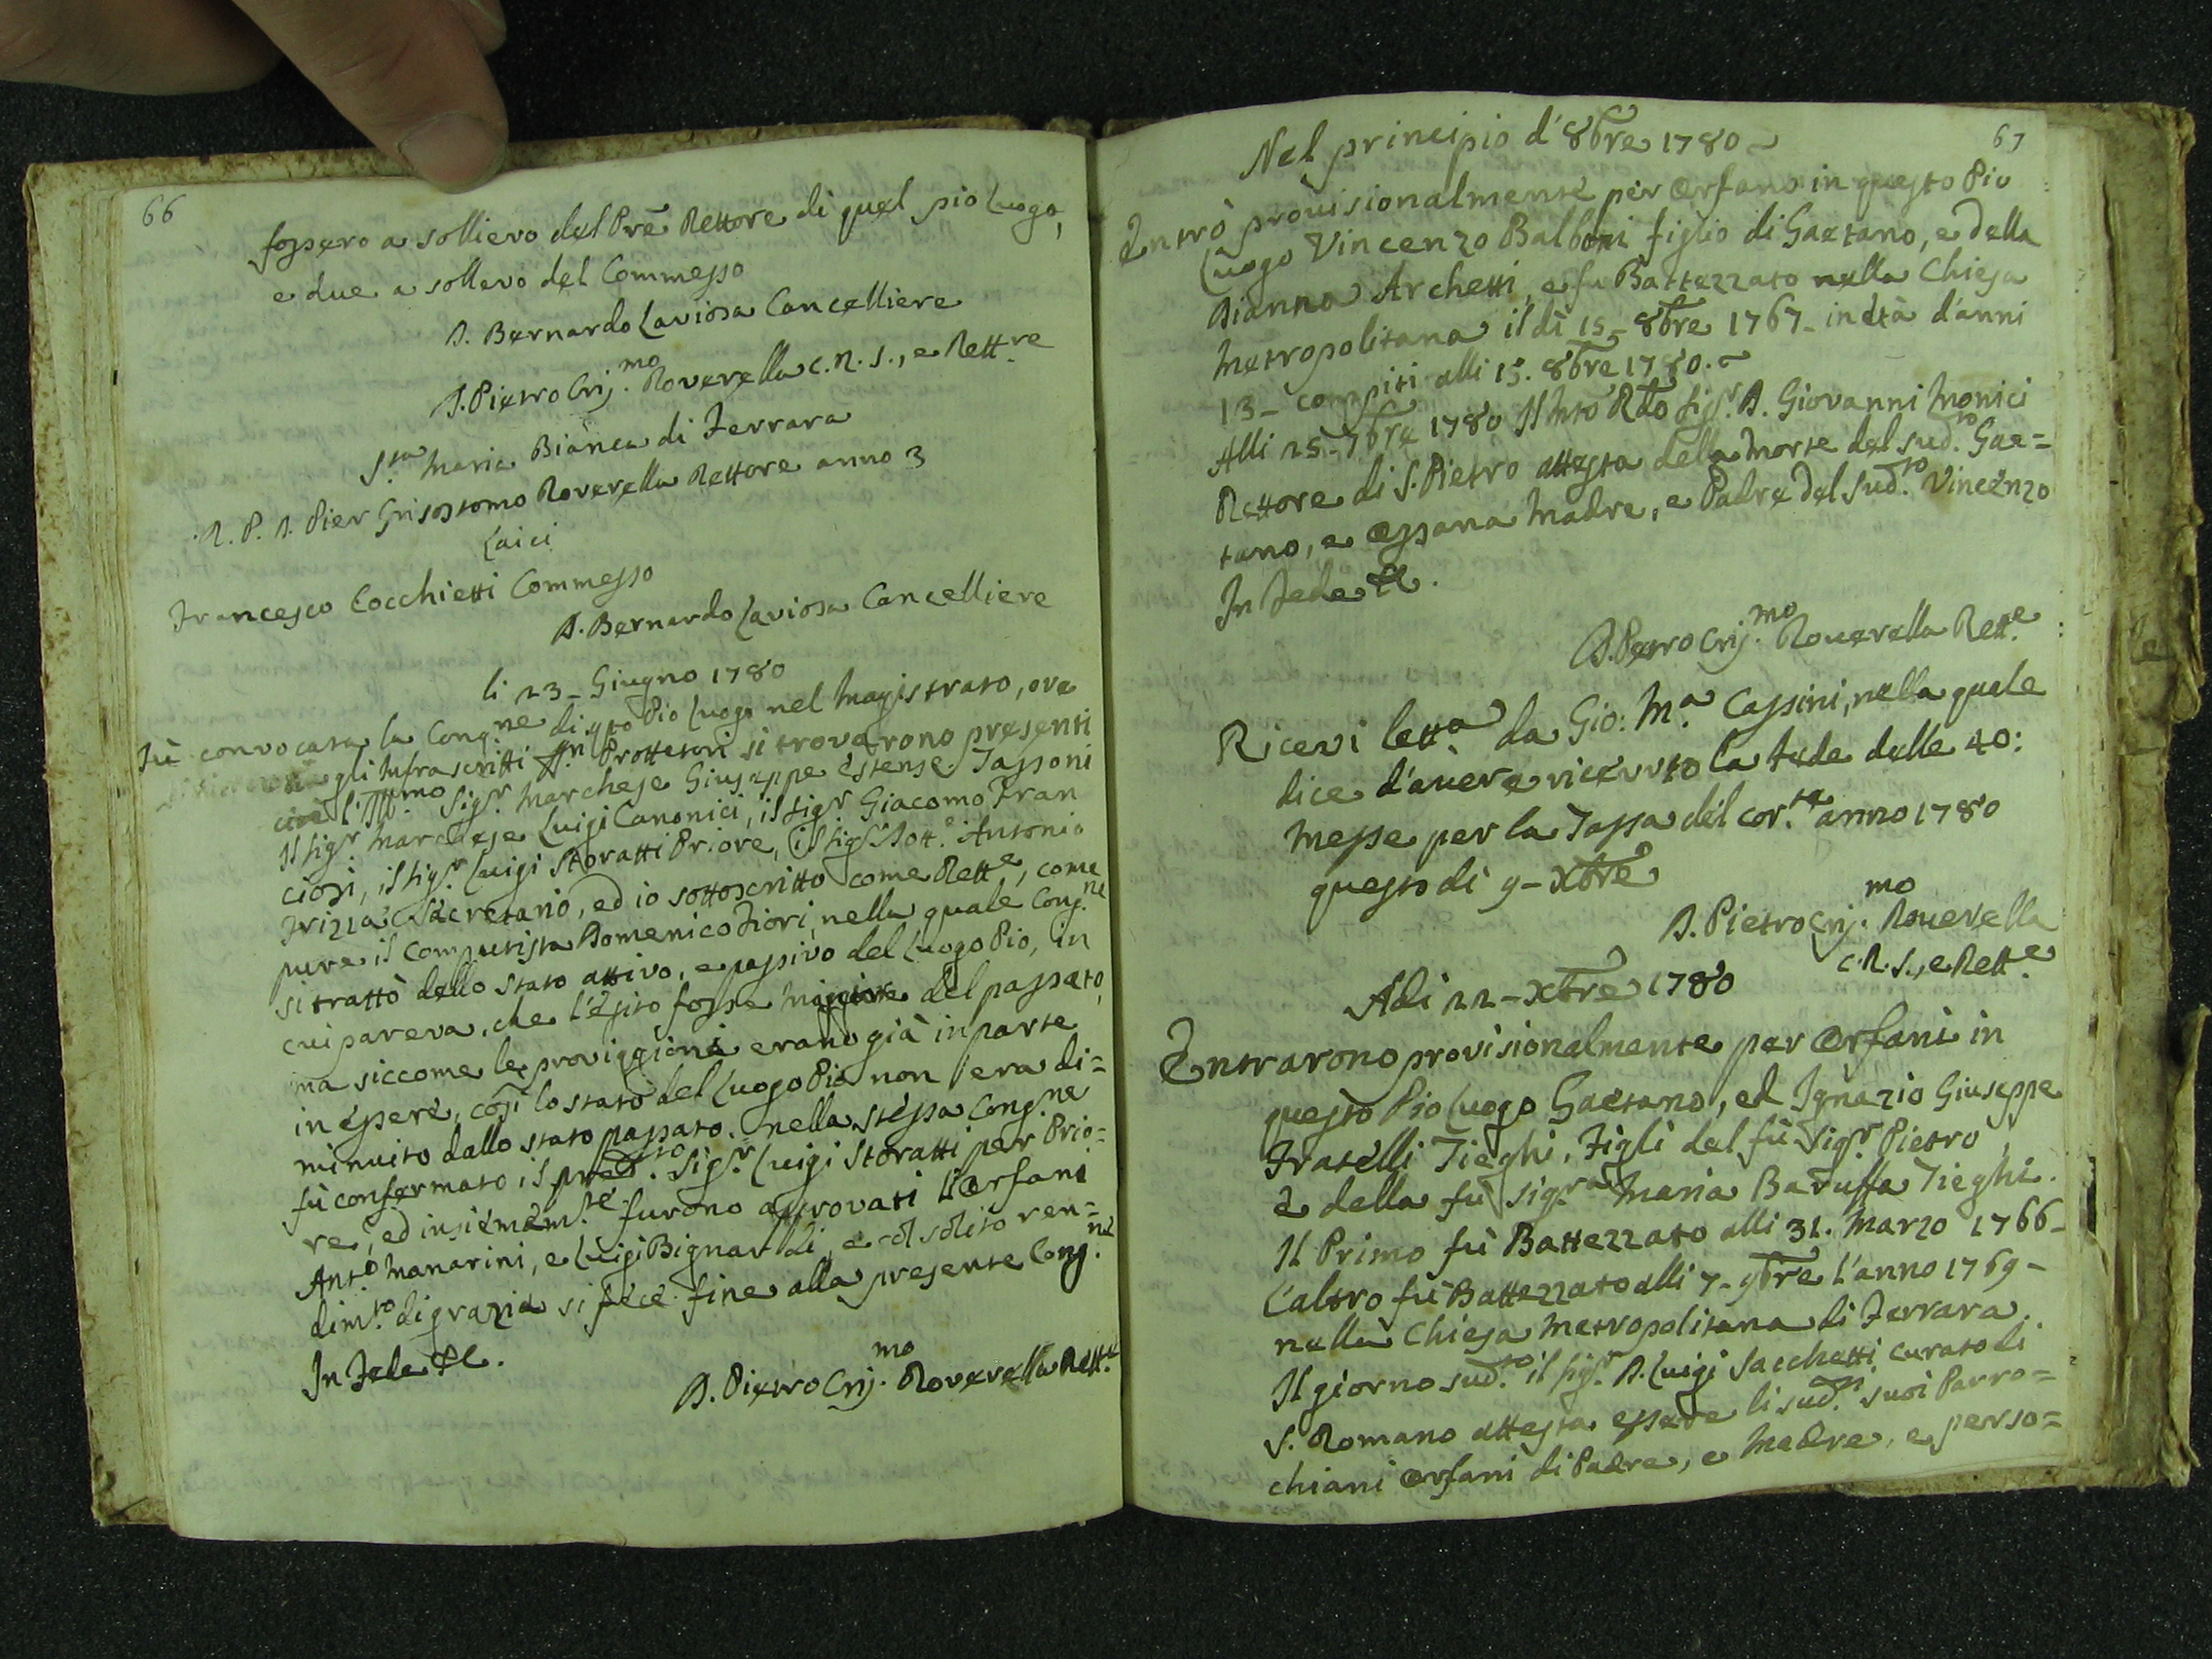 66
fossero a sollievo del Prē Rettore di quel pio Luogo,
e due a sollevo del Commesso
D. Bernardo Laviosa Cancelliere
D. Pietro Crij.mo Roverella C.R.S., e Rett.re
S.ta Maria Bianca di Ferrara
R. P. D. Pier Grisostomo Roverella Rettore anno 3
Laici
Francesco Cocchietti Commesso
D. Bernardo Laviosa Cancelliere
li 23 - Giugno 1780
Fù convocata la Cong.ne di qto Pio Luogo nel Magistrato, ove
gli Infrascritti Prottetori si trovarono presenti
cioè l'Illmo Sig.r Marchese Giuseppe Estense Tassoni
Il Sig.r Marchese Luigi Canonici, il Sig.r Giacomo Fran
ciosi, il Sig.r Luigi Storatti Priore, il Sig.r Dott.e Antonio
Frizza Secretario, ed io sottoscritto come Rett.e, come
pure il Computista Domenico Fiori, nella quale Cong.ne
si trattò dello stato attivo, e passivo del Luogo Pio, in
cui pareva, che l'esito fosse maggiore del passato,
ma siccome le proviggioni erano già in parte
in essere, così lo stato del Luogo Pio non era di=
minuito dallo stato passato. nella stessa Cong.ne
fù confermato il pred.to Sig.r Luigi Storatti per Prio=
re, ed insiemem.te furono approvati l'Orfani
Anto Manarini, e Luigi Bignardi, e col solito ren=
dim.to di grazia si fece fine alla presente Cong.ne
In Fede &c.
D. Pietro Crij.mo Roverella Rett.e
67
Nel principio d'8bre 1780 ~
Entrò provisionalmente per Orfano in questo Pio
Luogo Vincenzo Balboni figlio di Gaetano, e della
Dianna Archetti, e fu Battezzato nella Chiesa
Metropolitana il dì 15 - 8bre 1767 - in età d'anni
13 - compiti alli 15. 8bre 1780. ~
Alli 25 - 7bre 1780 Il Mto Rdo Sig.r D. Giovanni Monici
Rettore di S. Pietro attesta della morte del sud.to Gae=
tano, e Madre, e Padre del sud.to Vincenzo
In Fede &c.
D. Pietro Crij.mo Roverella Rett.e
Ricevi lett.a da Gio: M.a Cassini, nella quale
dice d'avere ricevuto la fede delle 40:
Messe per la Tassa del cor.te anno 1780
questo di 9 - Xbre
D. Pietro Crij.mo Roverella
C.R.S., e Rett.e
Adi 22 - Xbre 1780
Entrarono provisionalmente per Orfani in
questo Pio Luogo Gaetano, ed Ignazio Giuseppe
Fratelli Tieghi, Figli del fù Sig.r Pietro
e della fù Sig.ra Maria Baruffa Tieghi.
Il Primo fù Battezzato alli 31. Marzo 1766 -
L'altro fù Battezzato alli 7 - 9bre l'anno 1769 -
nella Chiesa Metropolitana di Ferrara.
Il giorno sud.to il Sig.r D. Luigi Sacchetti Curato di
S. Romano attesta essere li sud.ti suoi Parro=
chiani Orfani di Padre, e Madre, e perso=